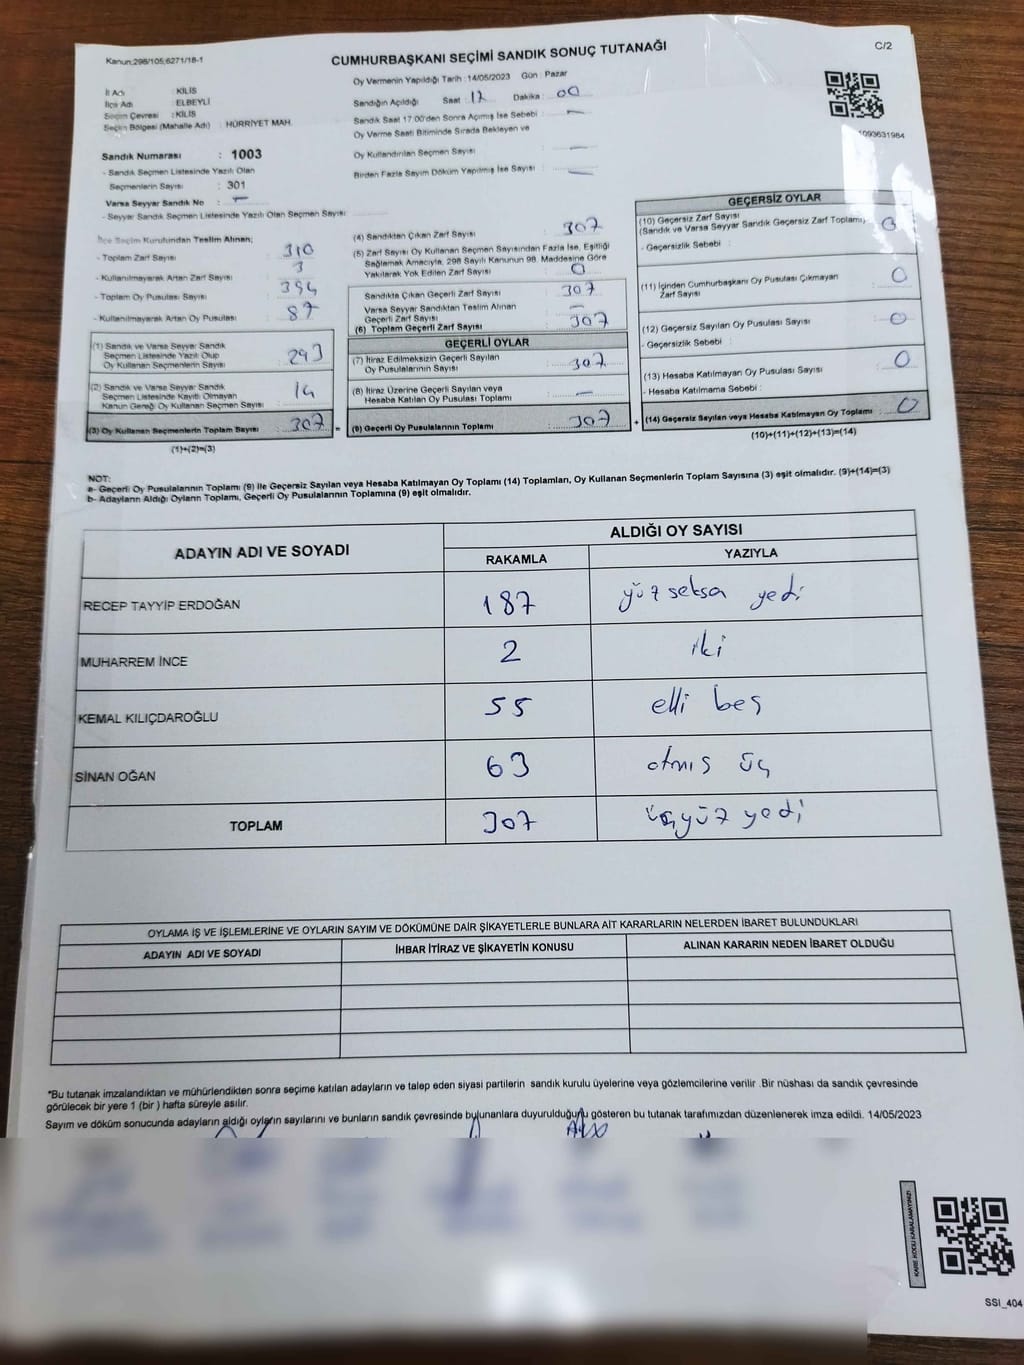 Kanun;298/105;6271/18-1
CUMHURBAŞKANI SEÇİMİ SANDIK SONUÇ TUTANAĞI
C/2
İl Adı : KİLİS
İlçe Adı : ELBEYLİ
Seçim Çevresi : KİLİS
Seçim Bölgesi (Mahalle Adı) : HÜRRİYET MAH.
Sandık Numarası : 1003
- Sandık Seçmen Listesinde Yazılı Olan
Seçmenlerin Sayısı : 301
Varsa Seyyar Sandık No : —
- Seyyar Sandık Seçmen Listesinde Yazılı Olan Seçmen Sayısı:
Oy Vermenin Yapıldığı Tarih : 14/05/2023 Gün : Pazar
Sandığın Açıldığı Saat : 17 Dakika : 00
Sandık Saat 17:00'den Sonra Açılmış İse Sebebi : —
Oy Verme Saati Bitiminde Sırada Bekleyen ve
Oy Kullandırılan Seçmen Sayısı : —
Birden Fazla Sayım Döküm Yapılmış İse Sayısı : —
1093631984
İlçe Seçim Kurulundan Teslim Alınan;
- Toplam Zarf Sayısı : 310
- Kullanılmayarak Artan Zarf Sayısı : 3
- Toplam Oy Pusulası Sayısı : 394
- Kullanılmayarak Artan Oy Pusulası : 87
(1) Sandık ve Varsa Seyyar Sandık
Seçmen Listesinde Yazılı Olup
Oy Kullanan Seçmenlerin Sayısı : 293
(2) Sandık ve Varsa Seyyar Sandık
Seçmen Listesinde Kayıtlı Olmayan
Kanun Gereği Oy Kullanan Seçmen Sayısı : 14
(3) Oy Kullanan Seçmenlerin Toplam Sayısı : 307
(1)+(2)=(3)
(4) Sandıktan Çıkan Zarf Sayısı : 307
(5) Zarf Sayısı Oy Kullanan Seçmen Sayısından Fazla İse, Eşitliği
Sağlamak Amacıyla, 298 Sayılı Kanunun 98. Maddesine Göre
Yakılarak Yok Edilen Zarf Sayısı : 0
Sandıkta Çıkan Geçerli Zarf Sayısı : 307
Varsa Seyyar Sandıktan Teslim Alınan
Geçerli Zarf Sayısı : —
(6) Toplam Geçerli Zarf Sayısı : 307
GEÇERLİ OYLAR
(7) İtiraz Edilmeksizin Geçerli Sayılan
Oy Pusulalarının Sayısı : 307
(8) İtiraz Üzerine Geçerli Sayılan veya
Hesaba Katılan Oy Pusulası Toplamı : —
= (9) Geçerli Oy Pusulalarının Toplamı : 307 +
GEÇERSİZ OYLAR
(10) Geçersiz Zarf Sayısı
(Sandık ve Varsa Seyyar Sandık Geçersiz Zarf Toplamı) : 0
- Geçersizlik Sebebi :
(11) İçinden Cumhurbaşkanı Oy Pusulası Çıkmayan
Zarf Sayısı : 0
(12) Geçersiz Sayılan Oy Pusulası Sayısı : 0
- Geçersizlik Sebebi :
(13) Hesaba Katılmayan Oy Pusulası Sayısı : 0
- Hesaba Katılmama Sebebi :
(14) Geçersiz Sayılan veya Hesaba Katılmayan Oy Toplamı : 0
(10)+(11)+(12)+(13)=(14)
NOT:
a- Geçerli Oy Pusulalarının Toplamı (9) ile Geçersiz Sayılan veya Hesaba Katılmayan Oy Toplamı (14) Toplamları, Oy Kullanan Seçmenlerin Toplam Sayısına (3) eşit olmalıdır. (9)+(14)=(3)
b- Adayların Aldığı Oyların Toplamı, Geçerli Oy Pusulalarının Toplamına (9) eşit olmalıdır.
ADAYIN ADI VE SOYADI
ALDIĞI OY SAYISI
RAKAMLA YAZIYLA
RECEP TAYYİP ERDOĞAN 187 yüz seksen yedi
MUHARREM İNCE 2 iki
KEMAL KILIÇDAROĞLU 55 elli beş
SİNAN OĞAN 63 atmış üç
TOPLAM 307 üçyüz yedi
OYLAMA İŞ VE İŞLEMLERİNE VE OYLARIN SAYIM VE DÖKÜMÜNE DAİR ŞİKAYETLERLE BUNLARA AİT KARARLARIN NELERDEN İBARET BULUNDUKLARI
ADAYIN ADI VE SOYADI İHBAR İTİRAZ VE ŞİKAYETİN KONUSU ALINAN KARARIN NEDEN İBARET OLDUĞU
*Bu tutanak imzalandıktan ve mühürlendikten sonra seçime katılan adayların ve talep eden siyasi partilerin sandık kurulu üyelerine veya gözlemcilerine verilir .Bir nüshası da sandık çevresinde
görülecek bir yere 1 (bir ) hafta süreyle asılır.
Sayım ve döküm sonucunda adayların aldığı oyların sayılarını ve bunların sandık çevresinde bulunanlara duyurulduğunu gösteren bu tutanak tarafımızdan düzenlenerek imza edildi. 14/05/2023
KARE KODU KARALAMAYINIZ!
SSİ_404